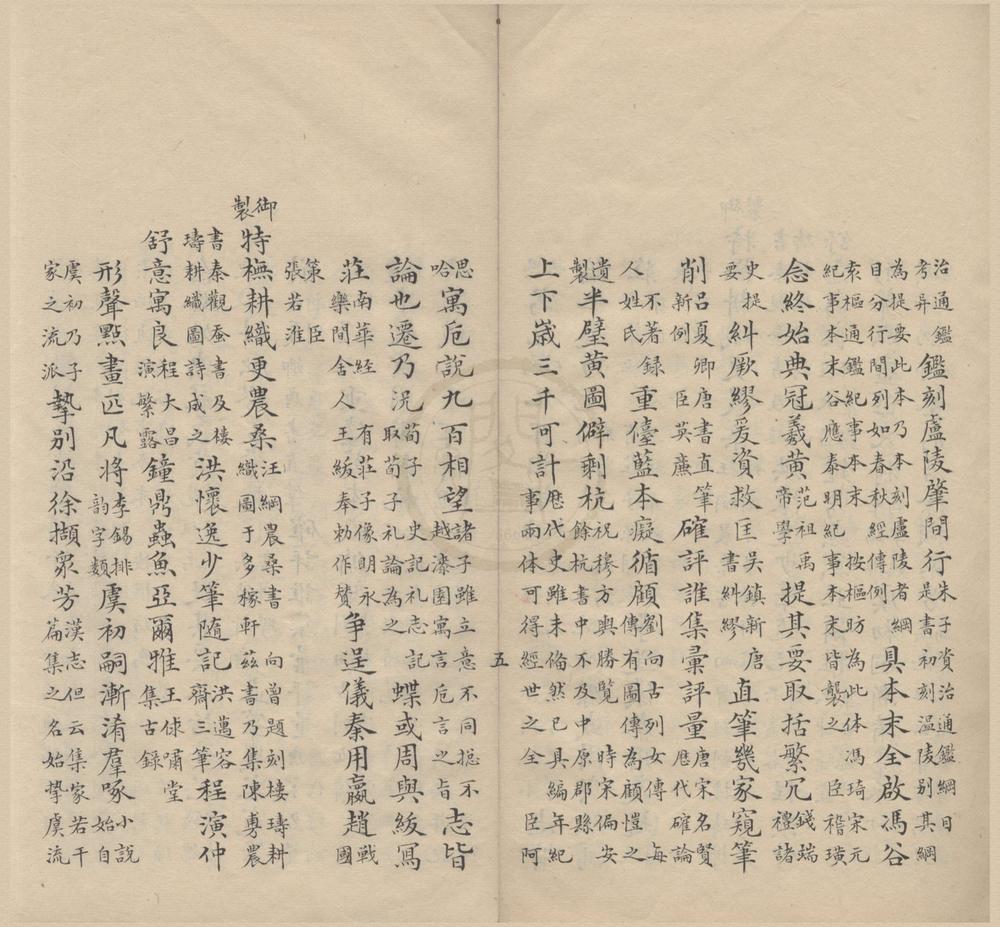 治通鑑
考异
鑑刻盧陵肇間行
朱子資治通鑑綱目
是書初刻温陵别其綱
為提要此本乃本刻盧陵者綱
目分行間列如春秋經傳例
具本末全啟馮谷
索樞通鑑紀事本末 按樞昉為此体馮琦宋元
紀事本末谷應泰明紀事本末皆襲之 臣稽璜
念終始典冠羲黄
范祖禹
帝學
提其要取括繁冗
錢瑞
禮諸
史提
要
糾厥繆爰資救匡
吴鎮新唐
書糾繆
直筆幾家窺筆
削
吕夏卿唐書直筆
新例 臣英廉
確評誰集彙評量
唐宋名賢
歷代確論
不著録
人姓氏
重儓藍本癡循顧
劉向古列女傳每
傳有圖傳為顧愷之
遺
製
半璧黄圖僻剩杭
祝穆方輿勝覽 時宋偏安
餘杭書中不及中原郡縣
上下嵗三千可計
歴代史雖未俻然已具編年紀
事兩体可得經世之全 臣阿
五
思
哈
寓卮說九百相望
諸子雖立意不同揔不
越漆園寓言卮言之旨
志皆
論也遷乃况
荀子 史記礼志記
取荀子礼論為之
蝶或周與紱冩
莊
南華經 有莊子像明永
樂間舍人王紱奉勅作賛
争逞儀秦用嬴趙
戰
國
策 臣
張若淮
御
製
特橅耕織更農桑
汪綱農桑書 向曾題刻楼璹耕
織圖于多稼軒 兹書乃集陳旉農
書秦觀蚕書及楼
璹耕織圖詩成之
洪懷逸少筆隨記
洪邁容
齋三筆
程演仲
舒意寓良
程大昌
演繁露
鐘鼎蟲魚亞爾雅
王俅嘯堂
集古録
形聲點畫匹凡將
李錫排
韵字類
虞初嗣漸淆羣啄
小說
始自
虞初乃子
家之流派
摯别沿徐擷衆芳
漢志但云集家若干
篇集之名始摯虞流